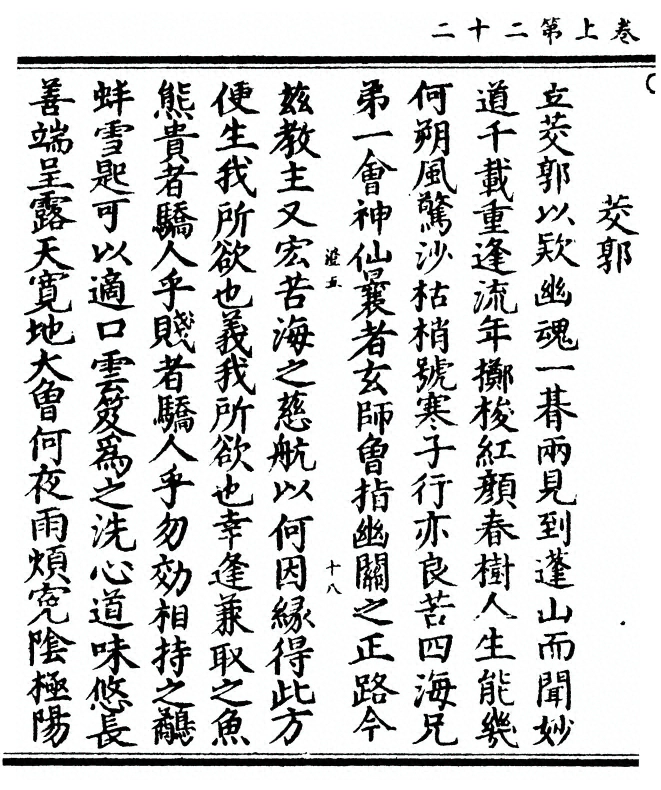 卷上第二十二
茭郭
立茭郭以欵幽魂一朞兩見到蓬山而聞妙
道千載重逢流年擲梭紅顔春樹人生能幾
何朔風驚沙枯梢號寒子行亦良苦四海兄
弟一會神仙曩者玄師曾指幽關之正路今
滙五 十八
玆教主又宏苦海之慈航以何因緣得此方
便生我所欲也義我所欲也幸逢兼取之魚
熊貴者驕人乎賤者驕人乎勿効相持之鷸
蚌雪匙可以適口雲笈爲之洗心道味悠長
善端呈露天寛地大曾何夜雨煩寃陰極陽